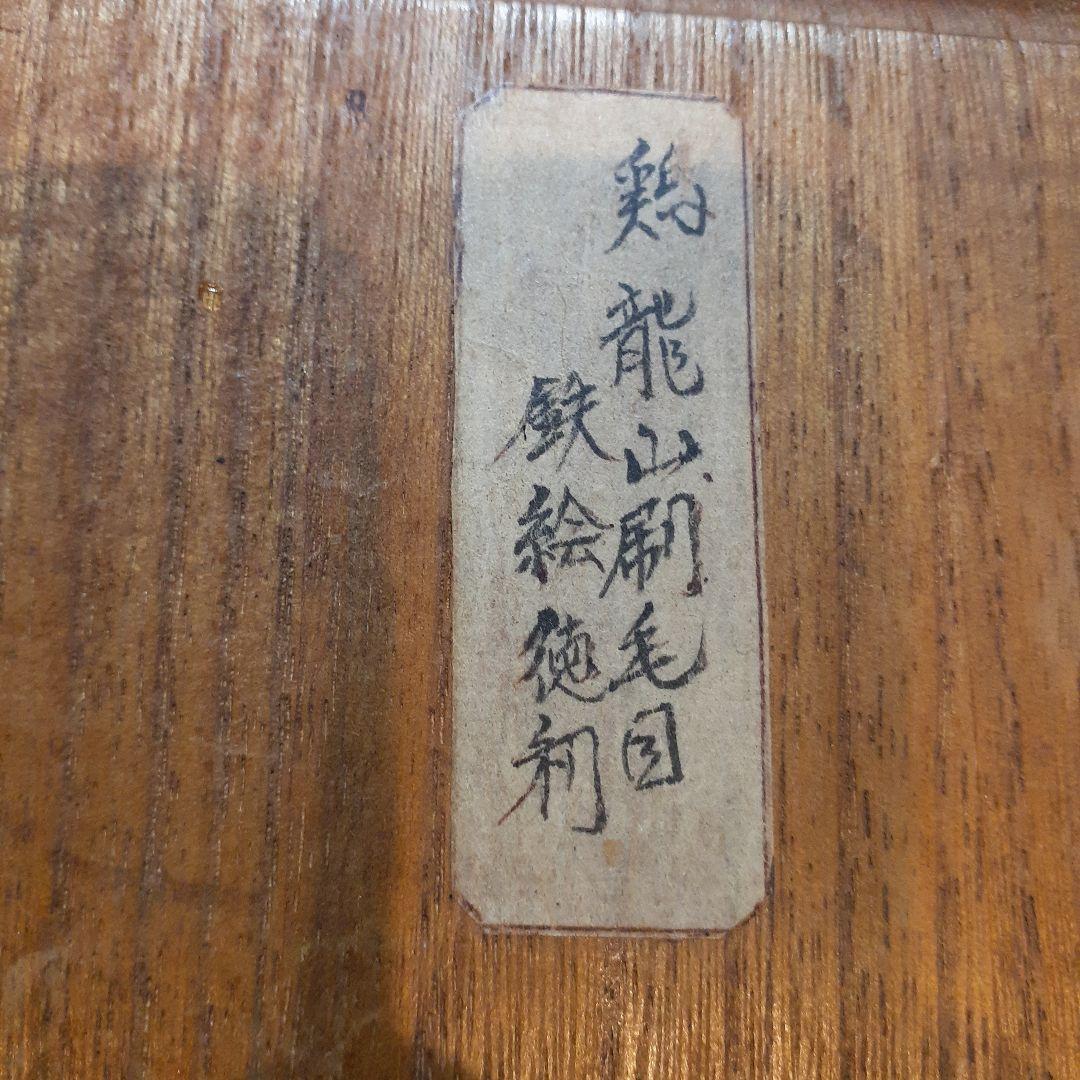 鶏龍山刷毛目
鉄絵徳利